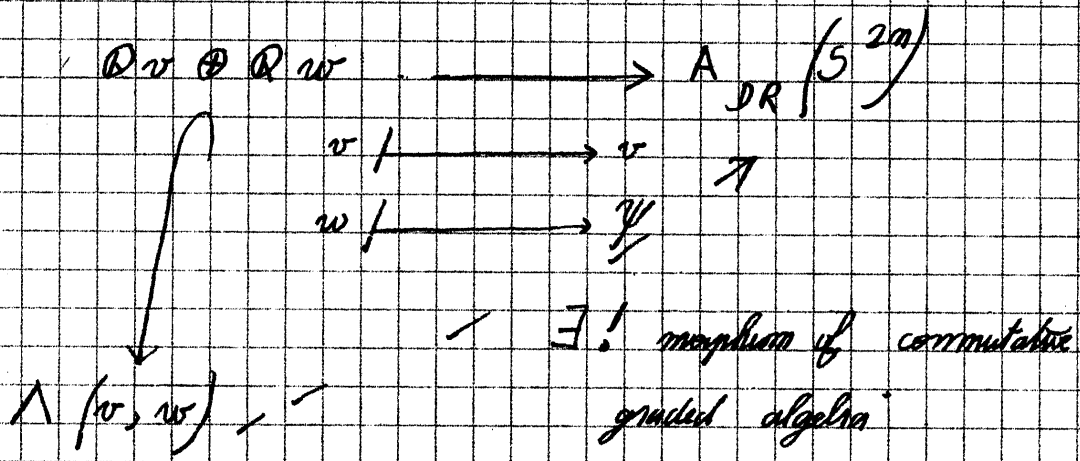 ℚv ⊕ ℚw ⟶ A_DR (S^{2n})
v ↦ v
w ↦ Ψ
∃! morphism of commutative
Λ (v, w) graded algebra